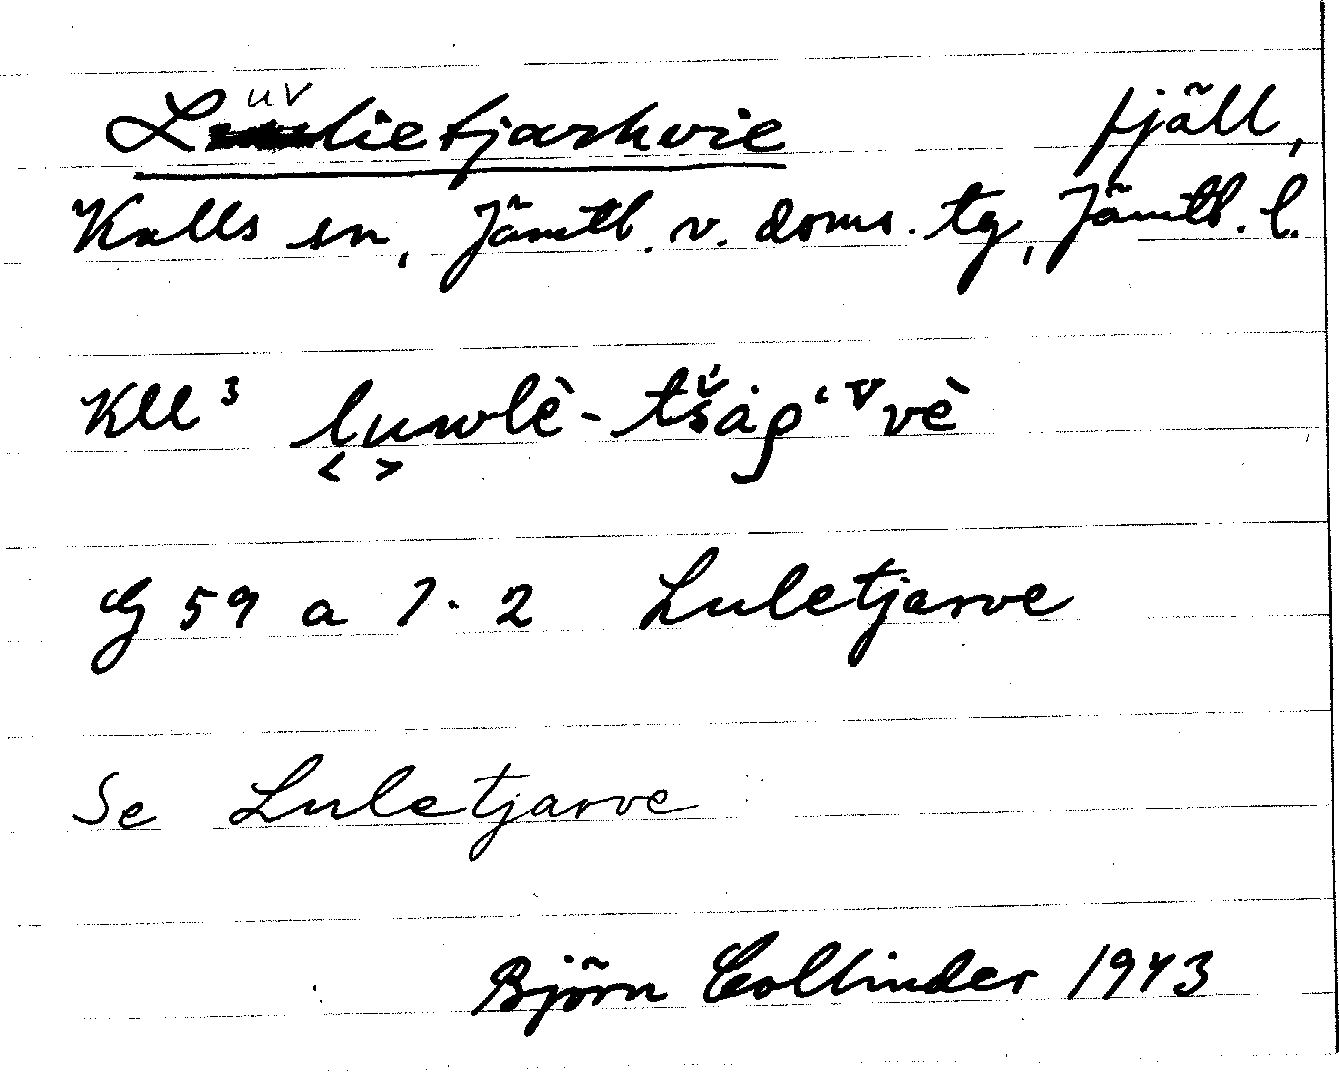 Luvlietjarhvie fjäll,
Kalls sn, Jämtl. v. doms. tg, Jämtl. l.
Kll³ luwlè-tšåp‘ vè
G 59 a 1·2 Luletjarve
Se Luletjarve
Björn Collinder 1943